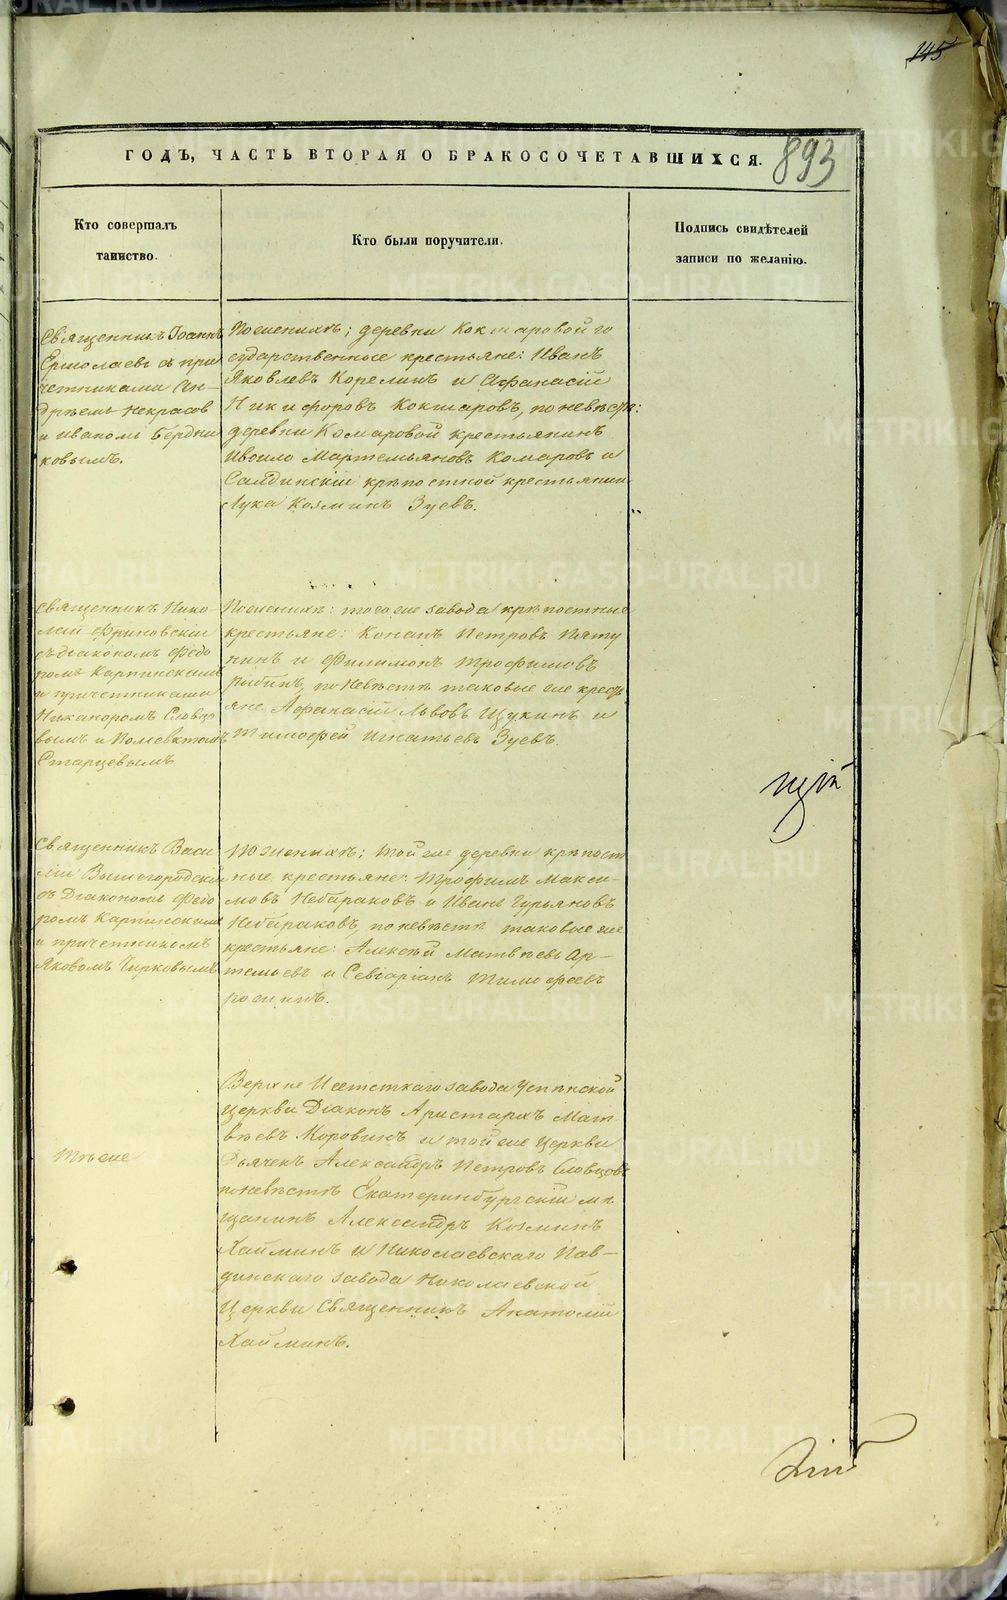 145
ГОДЪ, ЧАСТЬ ВТОРАЯ О БРАКОСОЧЕТАВШИХСЯ.
893
Кто совершалъ
таинство.
Кто были поручители.
Подпись свидѣтелей
записи по желанію.
Священникъ Іоаннъ
Ермолаевъ съ при
четниками Ан-
дреемъ Некрасов
и Иваномъ Бердни
ковымъ.
По женихѣ; деревни Кокшаровой го
сударственные крестьяне: Иванъ
Яковлевъ Корелинъ и Афанасій
Никифоровъ Кокшаровъ, по невѣстѣ:
деревни Комаровой крестьянинъ
Мартемьяновъ Комаровъ и
Салдинскій крѣпостной крестьянин
Лука Козминъ Зуевъ.
Священникъ Нико-
лай Фриновскій
съ діакономъ Федо
ромъ Карпинскимъ
и причетниками
Никаноромъ Словцо
вымъ и Полиевктомъ
Старцевымъ
По женихѣ: того же завода крѣпостные
крестьяне: Конанъ Петровъ Пяту
нинъ и Филимонъ Трофимовъ
Рыбинъ, по невѣстѣ таковые же кресть
яне Афанасій Львовъ Щукинъ и
Тимофей Игнатьевъ Зуевъ.
Священникъ Васи
лій Вышегородскій
съ Діакономъ Федо
ромъ Карпинскимъ
и причетникомъ
Яковомъ Чирковымъ
По женихѣ; той же деревни крѣпост
ные крестьяне: Трофимъ Макси-
мовъ Небараковъ и Иванъ Гурьяновъ
Небараковъ, по невѣстѣ таковые же
крестьяне: Алексѣй Матвѣевъ Ар-
темьевъ и Севіаріанъ Тимофеевъ
Тѣже
Верхне Исетскаго завода Успенской
Церкви Діаконъ Аристархъ Мат
вѣевъ Коровинъ и той же Церкви
Дьячекъ Александръ Петровъ Словцовъ
по невѣстѣ Екатеринбургскій мѣ
щанинъ Александръ Козминъ
Хайминъ и Николаевскаго Пав-
динскаго завода Николаевской
Церкви Священникъ Анатолій
Хайминъ.